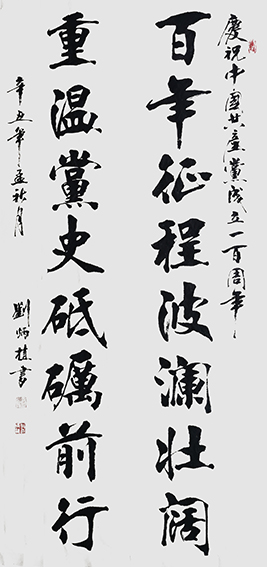 慶祝中國共產黨成立一百周年
百年征程波瀾壯闊
重溫黨史砥礪前行
辛丑年孟秋月
劉炳森書